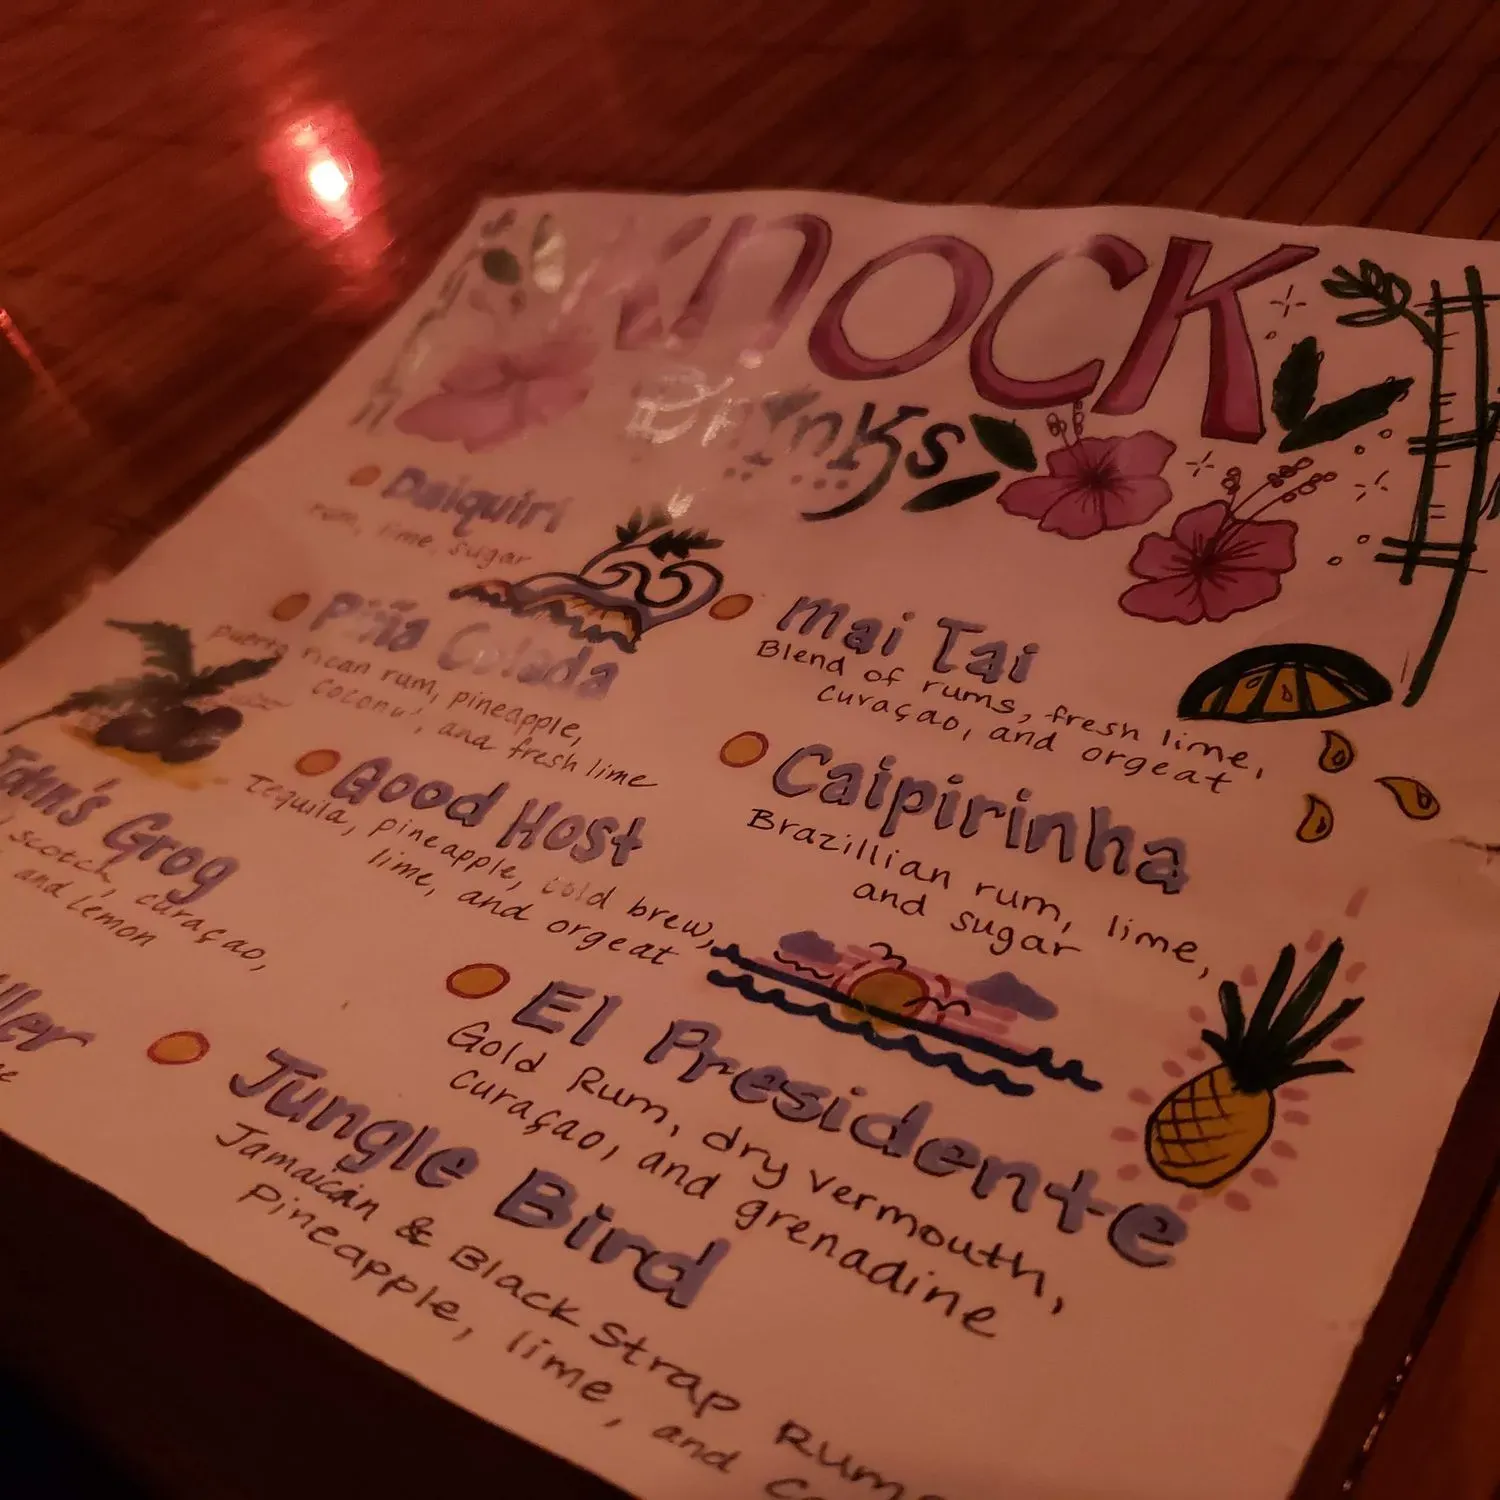 KNOCK
Drinks
Daiquiri
rum, lime, sugar
Piña Colada
Puerto rican rum, pineapple,
coconut, and fresh lime
Mai Tai
Blend of rums, fresh lime,
curaçao, and orgeat
Good Host
Tequila, pineapple, cold brew,
lime, and orgeat
Caipirinha
Brazillian rum, lime,
and sugar
Grog
scotch, curaçao,
and lemon
El Presidente
Gold Rum, dry vermouth,
curaçao, and grenadine
Jungle Bird
Jamaican & Black Strap Rums
Pineapple, lime, and